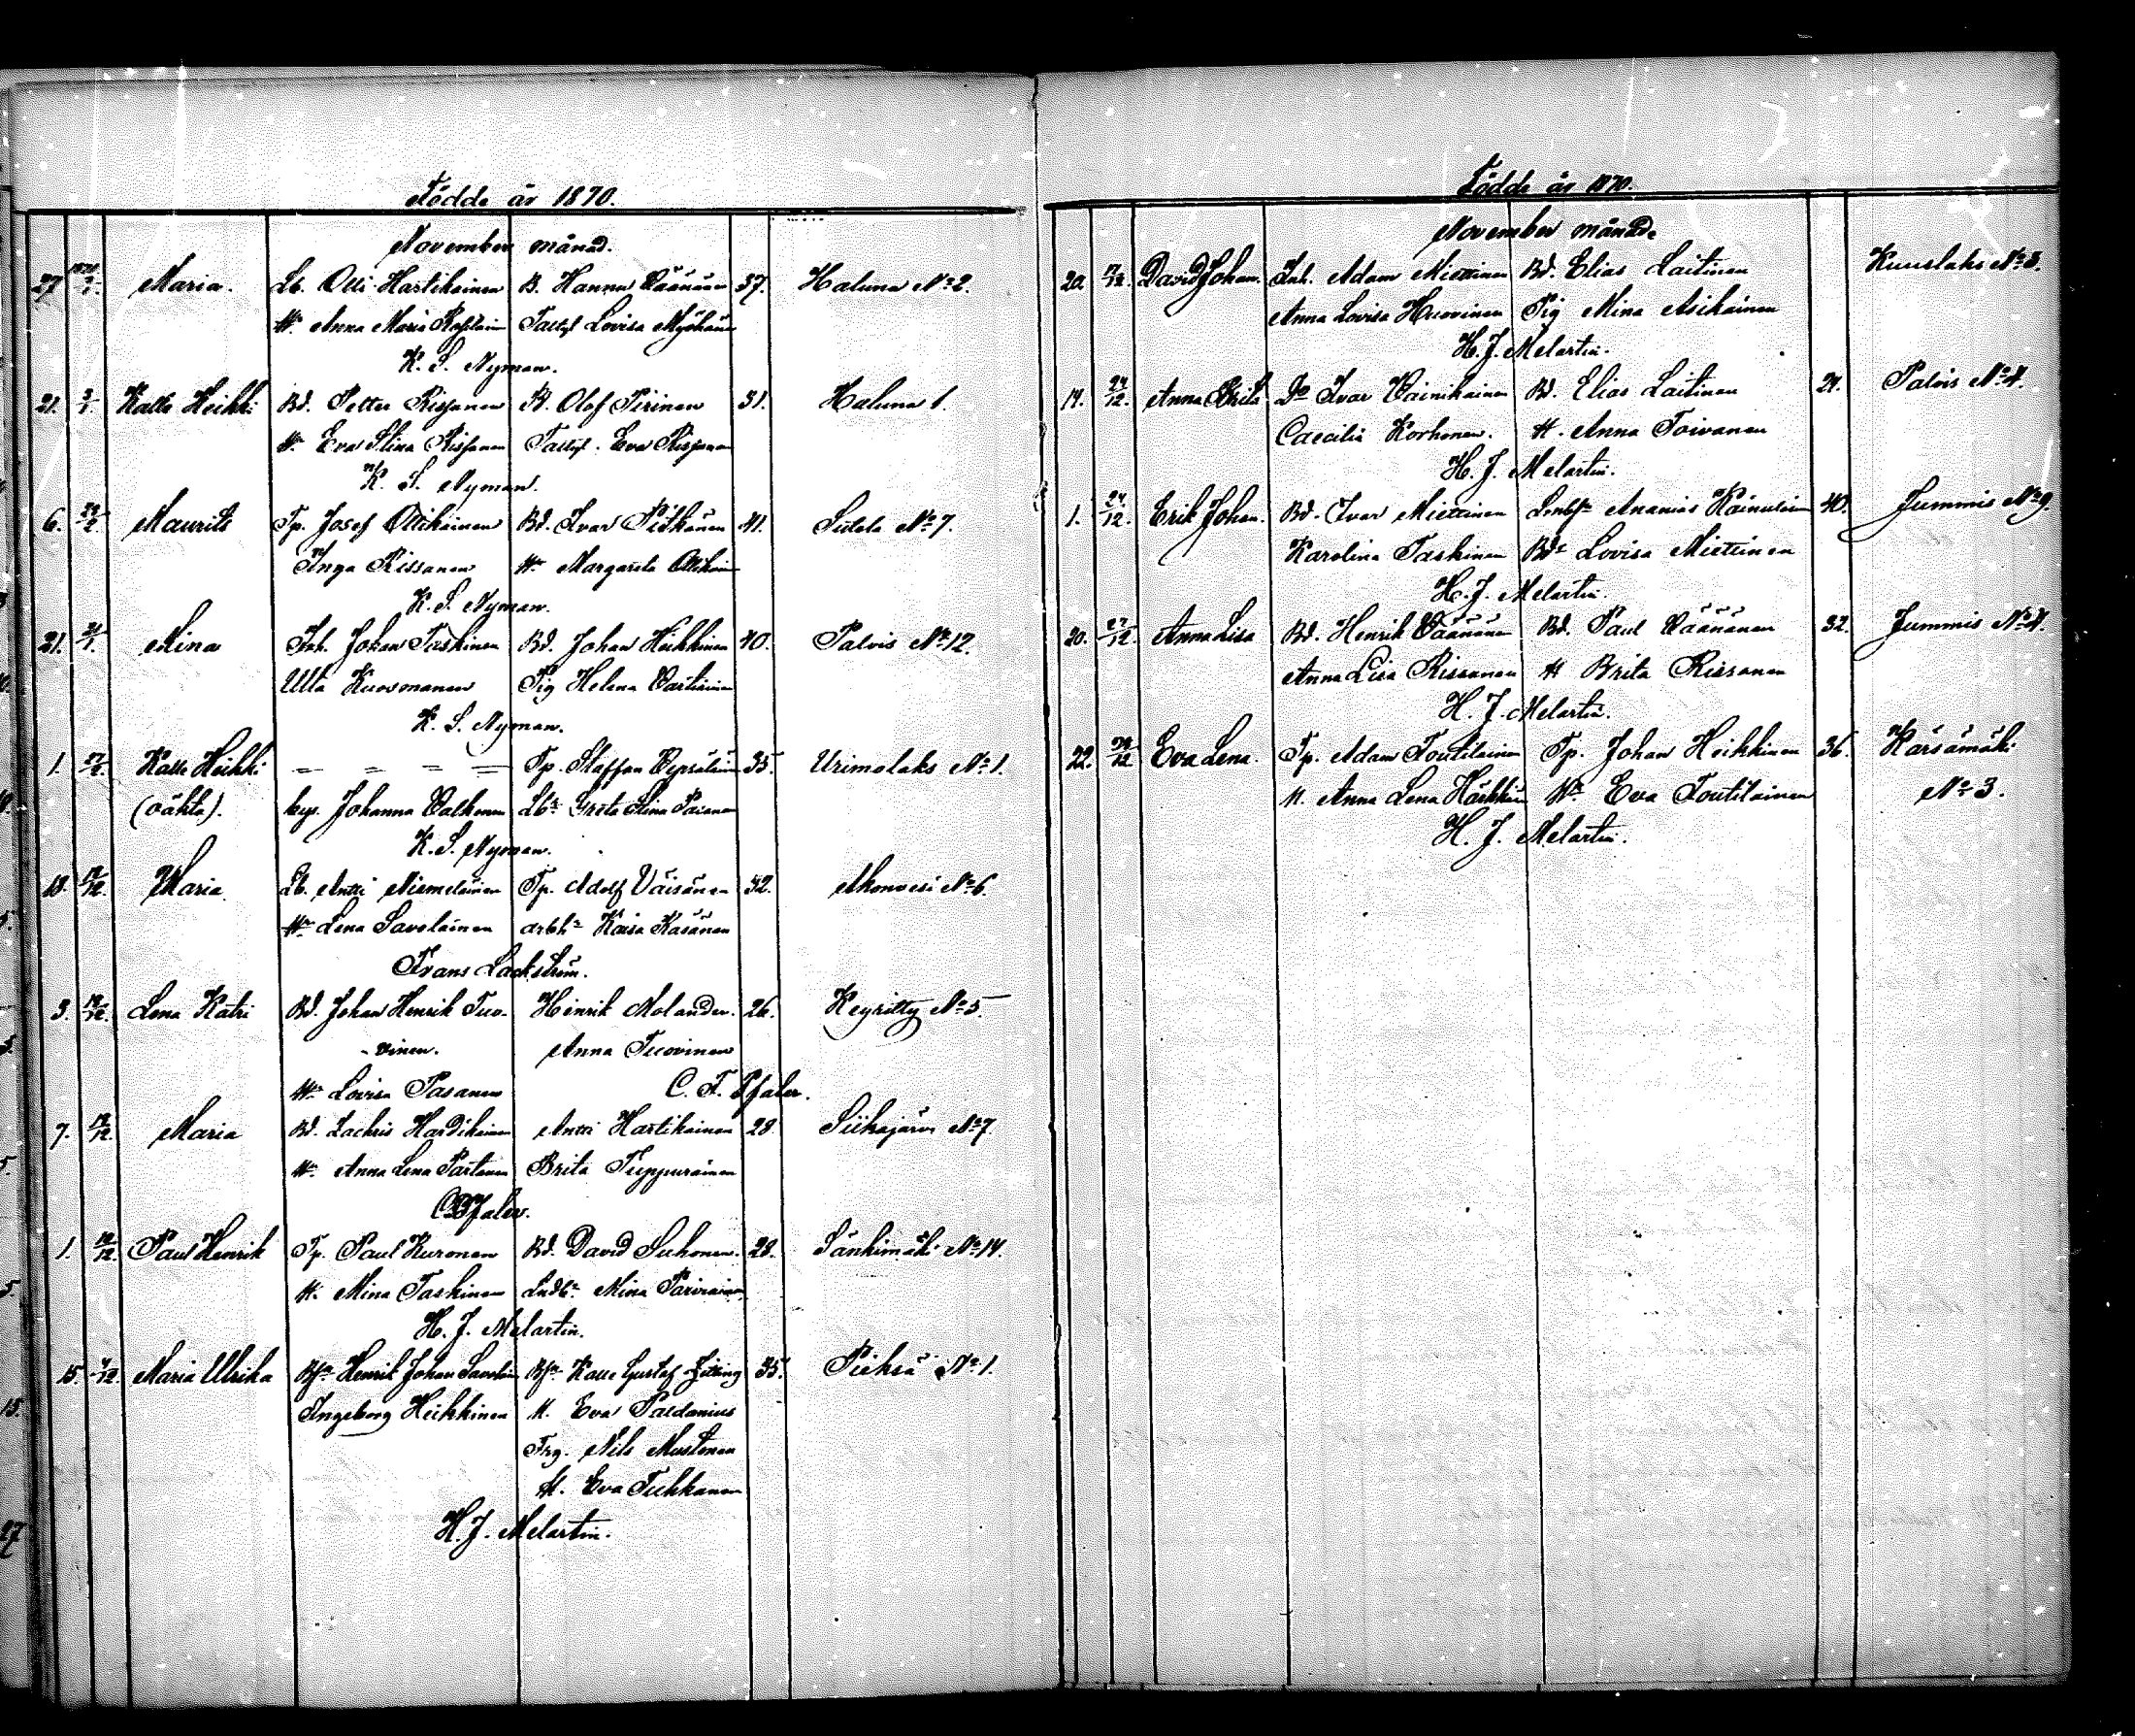 Födde år 1870.
November månad.
27 1871 2/1. Maria. Lb. Olli Hartikainen B. Hannu Väänänen 37. Haluna No 2.
Hn Anna Maria Lovisa
K. S. Nyman.
21. 3/1. Kalle Heikki Bd. Petter Rissanen B. Olof Pirinen 31. Haluna 1.
Hn Eva Stina Rissanen Eva Rissanen
K. S. Nyman.
6. Maurits Tp. Josef Ollikainen Bd. Ivar Pitkänen 41. Sutela No 7.
Inga Rissanen Hn Margareta Ollikain
K. S. Nyman.
21. Lina Inh. Johan Taskinen Bd. Johan Heikkinen 40. Palois No 12.
Ulla Kuosmanen Pig Helena Vartiainen
K. S. Nyman.
1. Kalle Heikki = = = = Tp. Staffan 35. Urimolaks No 1.
(oäkta). Johanna Valkonen Greta Stina
K. S. Nyman.
18. 12. Maria. Lb. Antti Niemeläinen Tp. Adolf Väisänen 32. Akonvesi No 6.
Hn Lena Savolainen arbkn Kaisa Kasanen
Frans Lackström.
3. 12. Lena Katri Bd. Johan Henrik Tuo- Heinrik Molander. 26. Keyritty No 5.
-vinen. Anna Tuovinen
Hn Lovisa Pasanen C. F. Pfaler.
7. 12. Maria Bd. Zachris Hardikainen Antti Hartikainen 28. Siikajärvi No 7.
Hn Anna Lena Partanen Brita Tuppurainen
Pfaler.
1. 12. Paul Henrik Tp. Paul Kuronen Bd. David Suhonen. 28. Sänkimäki No 14.
H. Mina Taskinen Mina Parviainen
H. J. Melartin.
15. 12. Maria Ulrika Henrik Johan Savolain Kalle Gustaf Zitting 35. Pieksä No 1.
Ingeborg Heikkinen H. Eva Paldanius
Nils Mustonen
H. Eva Tiehkanen
H. J. Melartin.
Födde år 1870.
November månad.
20. 17/12. David Johan. Inh. Adam Miettinen Bd. Elias Laitinen Kuuslaks No 3.
Anna Lovisa Huovinen Pig Mina Asikainen
H. J. Melartin.
19. 24/12. Anna Brita Do Ivar Vainikainen Bd. Elias Laitinen 24. Palois No 4.
Caecilia Korhonen. H. Anna Toivanen
H. J. Melartin.
1. 24/12. Erik Johan. Bd. Ivar Miettinen Ananias Kainulain 40. Jummis No 9.
Karolina Taskinen Bdn Lovisa Miettinen
H. J. Melartin.
20. 27/12. Anna Lisa Bd. Henrik Väänänen Bd. Paul Väänänen 32. Jummis No 4.
Anna Lisa Rissanen H Brita Rissanen
H. J. Melartin.
22. 12 Eva Lena. Tp. Adam Toutilainen Tp. Johan Heikkinen 36. Karsämäki
H. Anna Lena Hn Eva Toutilainen No 3.
H. J. Melartin.